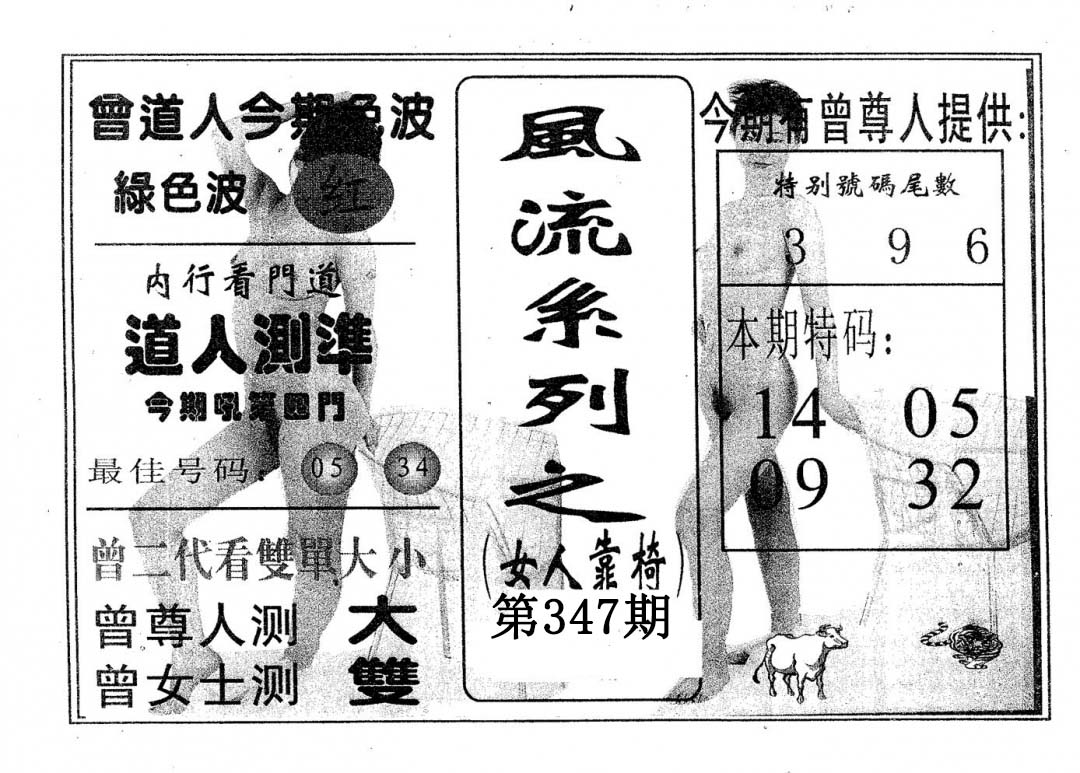 曾道人今期色波
綠色波 红
内行看門道
道人測準
今期吼第四門
最佳号码： 05 34
曾二代看雙單大小
曾尊人测 大
曾女士测 雙
風流系列之
（女人靠椅）
第347期
今期有曾尊人提供:
特别號碼尾數
3 9 6
本期特码:
14 05
09 32